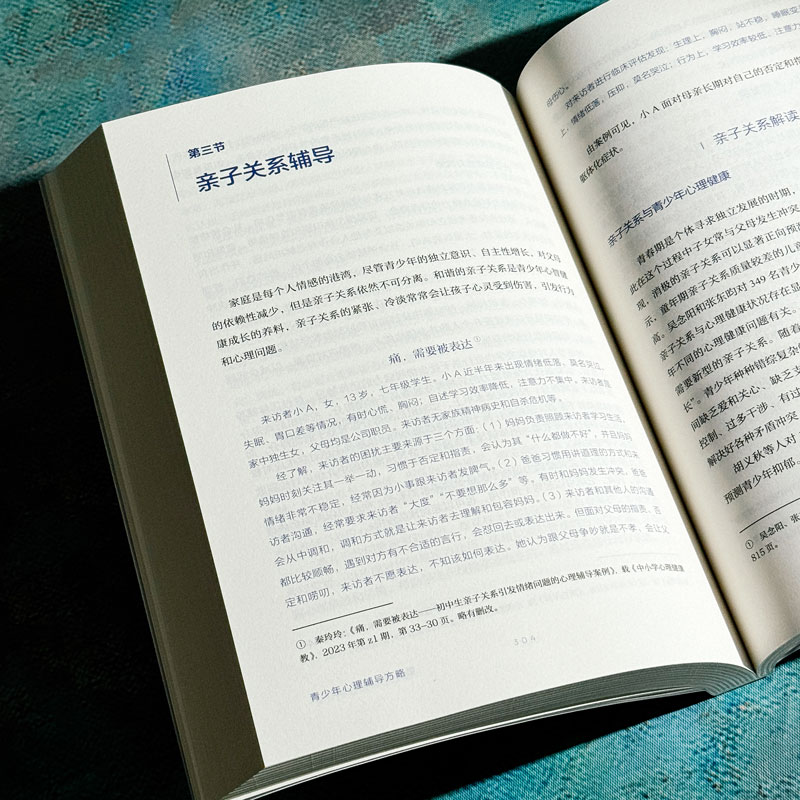 第三节
亲子关系辅导
家庭是每个人情感的港湾，尽管青少年的独立意识、自主性增长，对父母
的依赖性减少，但是亲子关系依然不可分离。和谐的亲子关系是青少年心智健
康成长的养料，亲子关系的紧张、冷淡常常会让孩子心灵受到伤害，引发行为
和心理问题。
痛，需要被表达①
来访者小A，女，13岁，七年级学生，小A近半年来出现情绪低落，莫名哭泣、
失眠、胃口差等情况，有时心慌、胸闷；自述学习效率降低，注意力不集中。来访者是
家中独生女，父母均是公司职员。来访者无家族精神病史和自杀危机等。
经了解，来访者的困扰主要来源于三个方面：（1）妈妈负责照顾来访者学习生活，
妈妈时刻关注其一举一动，习惯于否定和指责，会认为其“什么都做不好”，并且妈妈
情绪非常不稳定，经常因为小事跟来访者发脾气。（2）爸爸习惯用讲道理的方式和来
访者沟通，经常要求来访者“大度”“不要想那么多”等，有时和妈妈发生冲突，爸爸
会从中调和，调和方式就是让来访者去理解和包容妈妈。（3）来访者和其他人的沟通
都比较顺畅，遇到对方有不合适的言行，会怼回去或表达出来。但面对父母的指责、否
定和唠叨，来访者不愿表达，不知该如何表达。她认为跟父母争吵就是不孝，会让父
① 秦玲玲：《痛，需要被表达——初中生亲子关系引发情绪问题的心理辅导案例》，载《中小学心理健康
教》，2023年第z1期，第33-30页。略有删改。
304
青少年心理辅导方略
母伤心。
对来访者进行临床评估发现：生理上，胸闷，站不稳，睡眠变
上，情绪低落，压抑，莫名哭泣；行为上，学习效率较低，注意力
由案例可见，小A面对母亲长期对自己的否定和指
躯体化症状。
亲子关系解读
亲子关系与青少年心理健康
青春期是个体寻求独立发展的时期，
此在这个过程中子女常与父母发生冲突
现，消极的亲子关系可以显著正向预
示，童年期亲子关系质量较差的儿
高。吴念阳和张东昀对349名青少
亲子关系与心理健康状况存在显
年不同的心理健康问题有关。随着
需要新型的亲子关系。
长”。青少年种种错综复杂
间缺乏爱和关心、缺乏支
控制、过多干涉、有过
解决好各种矛盾冲突
胡义秋等人对
预测青少年抑郁
① 吴念阳、张
815页。